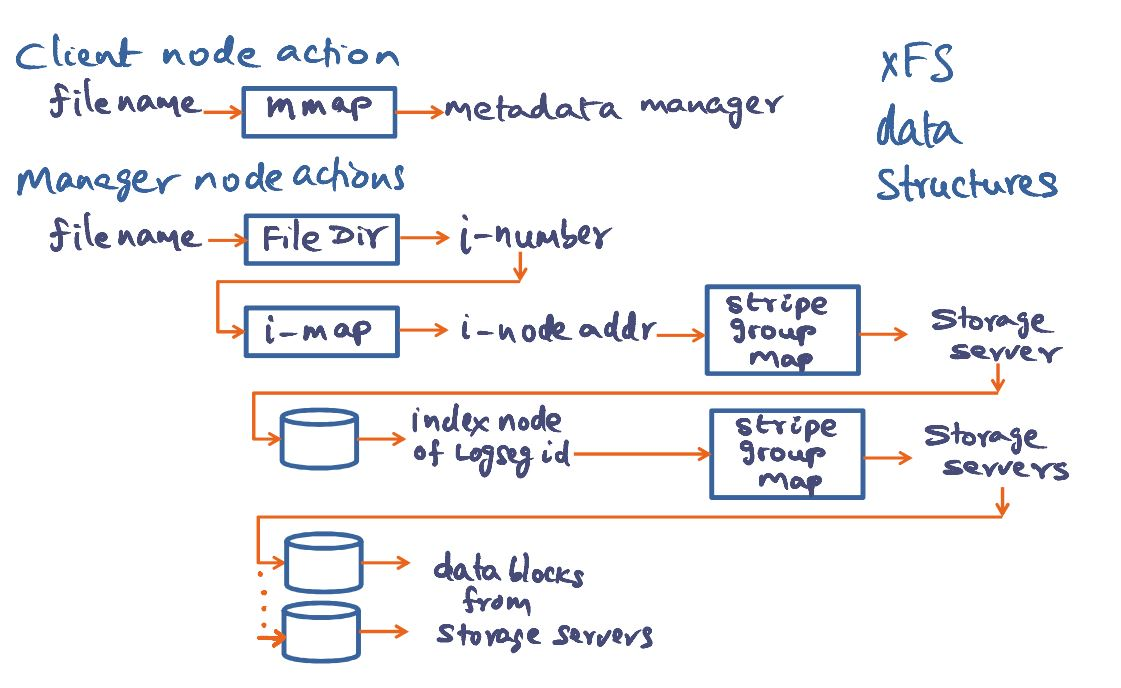 Client node action
filename
mmap
metadata manager
xFS
data
Structures
Manager node actions
filename
File Dir
i-number
i-map
i-node addr
stripe
group
map
Storage
server
index node
of Logseg id
stripe
group
map
Storage
servers
data blocks
from
storage servers